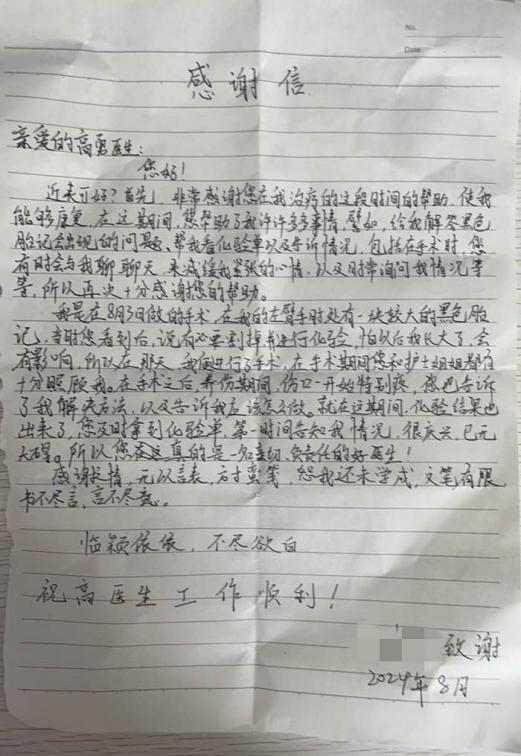 No.
Date
感谢信
亲爱的高勇医生:
您好!
近来可好?首先,非常感谢您在我治疗的这段时间的帮助,使我
能够康复,在这期间,您帮助了我许许多多事情,譬如,给我解答黑色
胎记会出现的问题,帮我看化验单以及告诉情况,包括在手术时,您
有时会与我聊聊天,来减缓我紧张的心情,以及时常询问我情况等
等,所以再次十分感谢您的帮助。
我是在8月3日做的手术,在我的左臂手肘处有一块较大的黑色胎
记,当时您看到后,说有必要割掉并进行化验,怕以后我长大了,会
有影响,所以在那天,我便进行了手术,在手术期间您和护士姐姐都有
十分照顾我。在手术之后,养伤期间,伤口一开始特别疼,您也告诉
了我解决方法,以及告诉我应该怎么做。就在这期间,化验结果也
出来了,您及时拿到化验单,第一时间告知我情况,很庆兴,已无
大碍。所以您真的是一名亲切,负责任的好医生!
感谢抒情,无以言表,方寸蛮笺,恕我还未学成,文笔有限
书不尽言,言不尽意。
临颖依依,不尽欲白
祝高医生工作顺利!
致谢
2024年8月